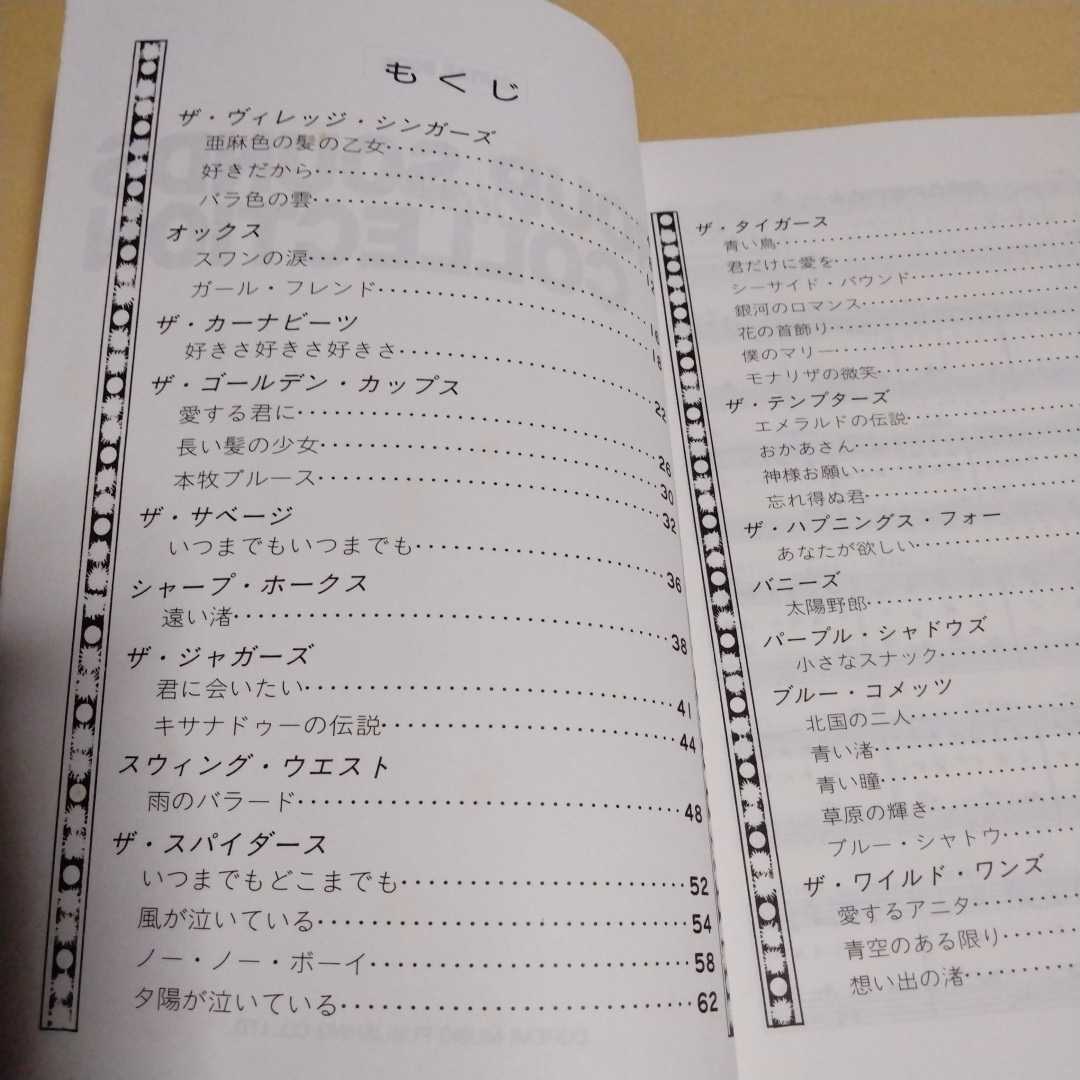 もくじ
ザ・ヴィレッジ・シンガーズ
亜麻色の髪の乙女
好きだから
バラ色の雲
オックス
スワンの涙
ガール・フレンド
ザ・カーナビーツ
好きさ好きさ好きさ
ザ・ゴールデン・カップス
愛する君に 22
長い髪の少女 26
本牧ブルース 30
ザ・サベージ 32
いつまでもいつまでも
シャープ・ホークス 36
遠い渚
ザ・ジャガーズ 38
君に会いたい 41
キサナドゥーの伝説 44
スウィング・ウエスト
雨のバラード 48
ザ・スパイダース
いつまでもどこまでも 52
風が泣いている 54
ノー・ノー・ボーイ 58
夕陽が泣いている 62
ザ・タイガース
青い鳥
君だけに愛を
シーサイド・バウンド
銀河のロマンス
花の首飾り
僕のマリー
モナリザの微笑
ザ・テンプターズ
エメラルドの伝説
おかあさん
神様お願い
忘れ得ぬ君
ザ・ハプニングス・フォー
あなたが欲しい
バニーズ
太陽野郎
パープル・シャドウズ
小さなスナック
ブルー・コメッツ
北国の二人
青い渚
青い瞳
草原の輝き
ブルー・シャトウ
ザ・ワイルド・ワンズ
愛するアニタ
青空のある限り
想い出の渚